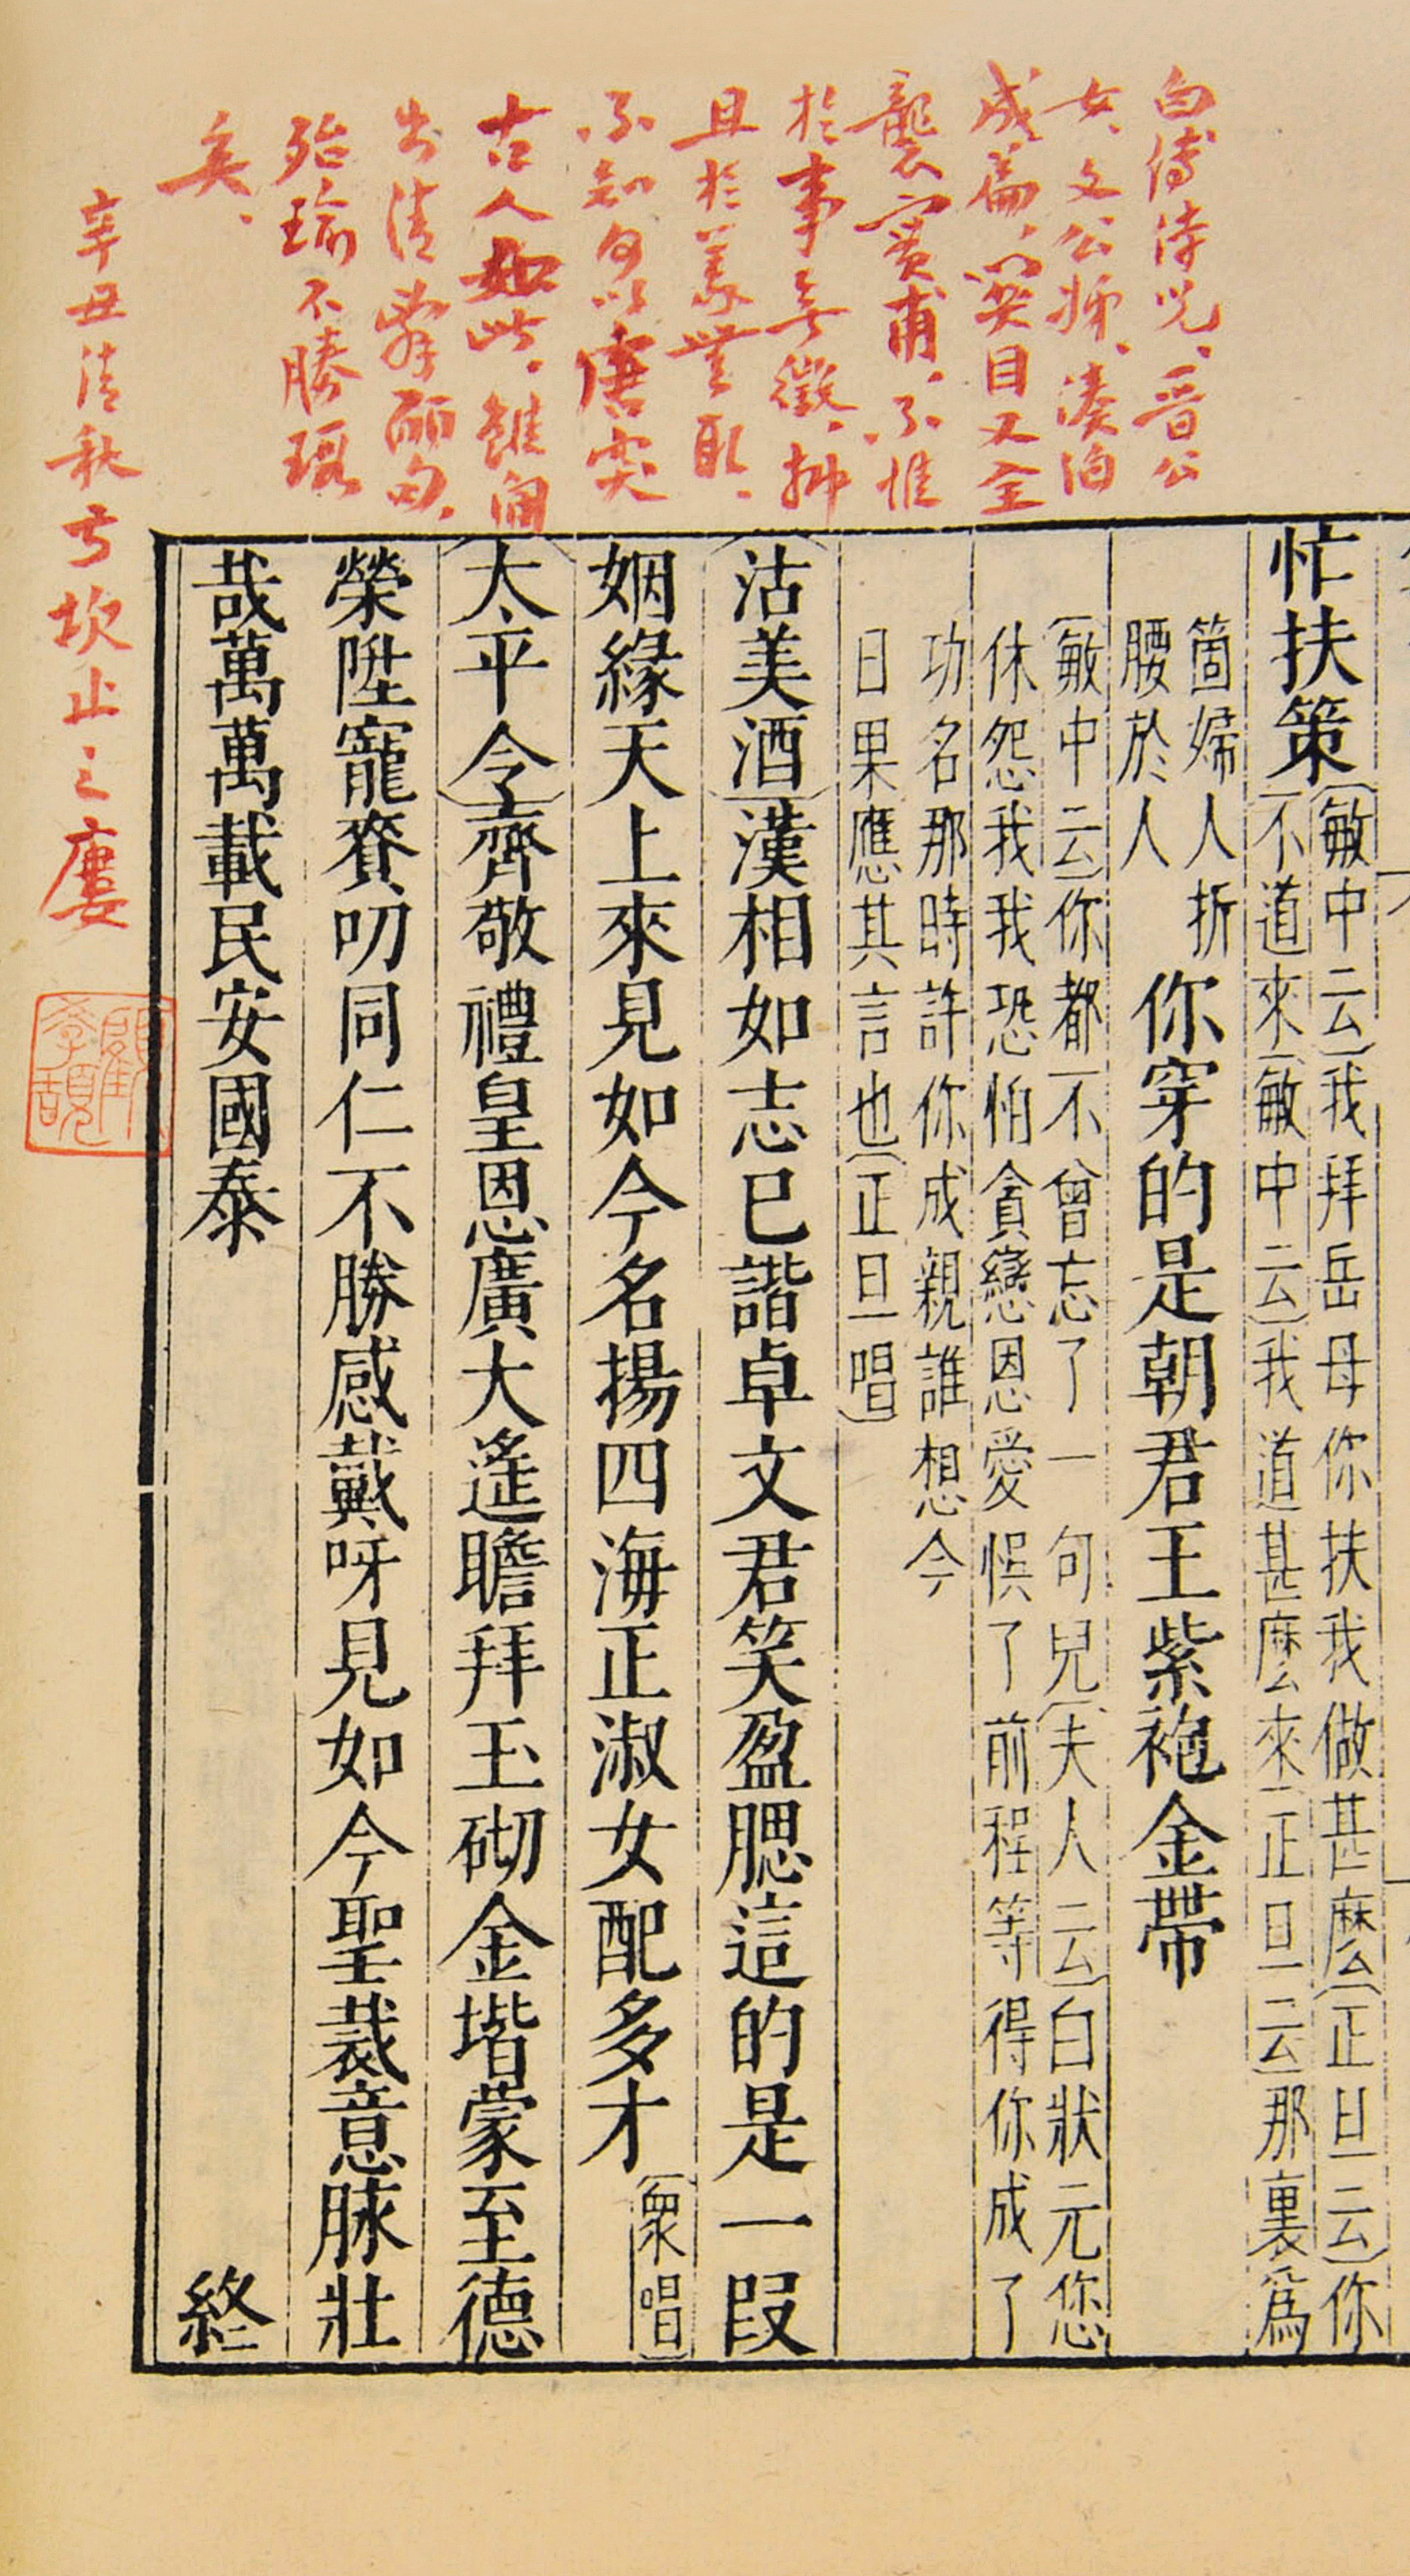 白傅兄、晉公
女、文公姊、湊泊
成篇、關目又全
襲實甫、不惟
於事無徵、抑
且於義無取、
不知何以唐突
古人如此、雖間
出清辭麗句、
殆瑜不勝瑕
矣、
忙扶策〔敏中云〕我拜岳母你扶我做甚麽〔正旦云〕你
不道來〔敏中云〕我道甚麽來〔正旦云〕那裏爲
箇婦人折
腰於人
你穿的是朝君王紫袍金帶
〔敏中云〕你都不曾忘了一句兒〔夫人云〕白狀元您
休怨我我恐怕貪戀恩愛悞了前程等得你成了
功名那時許你成親誰想今
日果應其言也〔正旦唱〕
〔沽美酒〕漢相如志已諧卓文君笑盈腮這的是一段
姻緣天上來見如今名揚四海正淑女配多才〔衆唱〕
〔太平令〕齊敬禮皇恩廣大遙瞻拜玉砌金堦蒙至德
榮陞寵賚叨同仁不勝感戴呀見如今聖裁意脉壯
哉萬萬載民安國泰
終
辛丑清秋亏坎止之廔